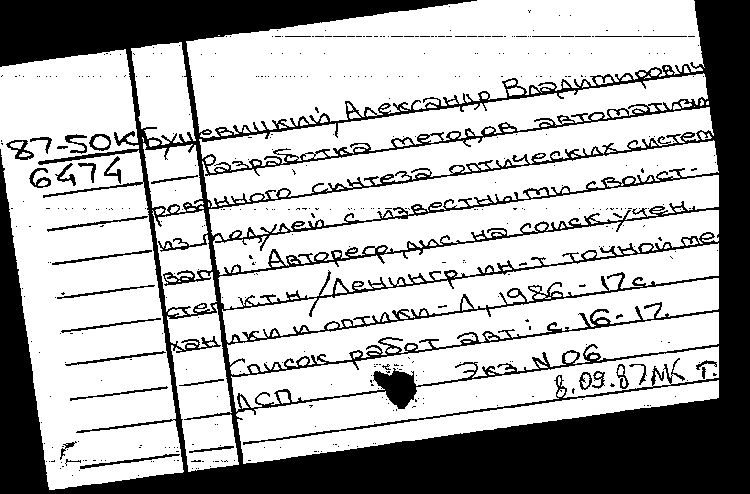 87-50К
6474
Буцевицкий, Александр Владимирович
Разработка методов автоматизи
рованного синтеза оптических систем
из модулей с известными свойст-
вами: Автореф. дис. на соиск. учен.
степ. к.т.н. / Ленингр. ин-т точной ме-
ханики и оптики. - Л., 1986. - 17 с.
Список работ авт.: с. 16-17.
Экз. N 06.
ДСП.
8.09.87 МК Т.